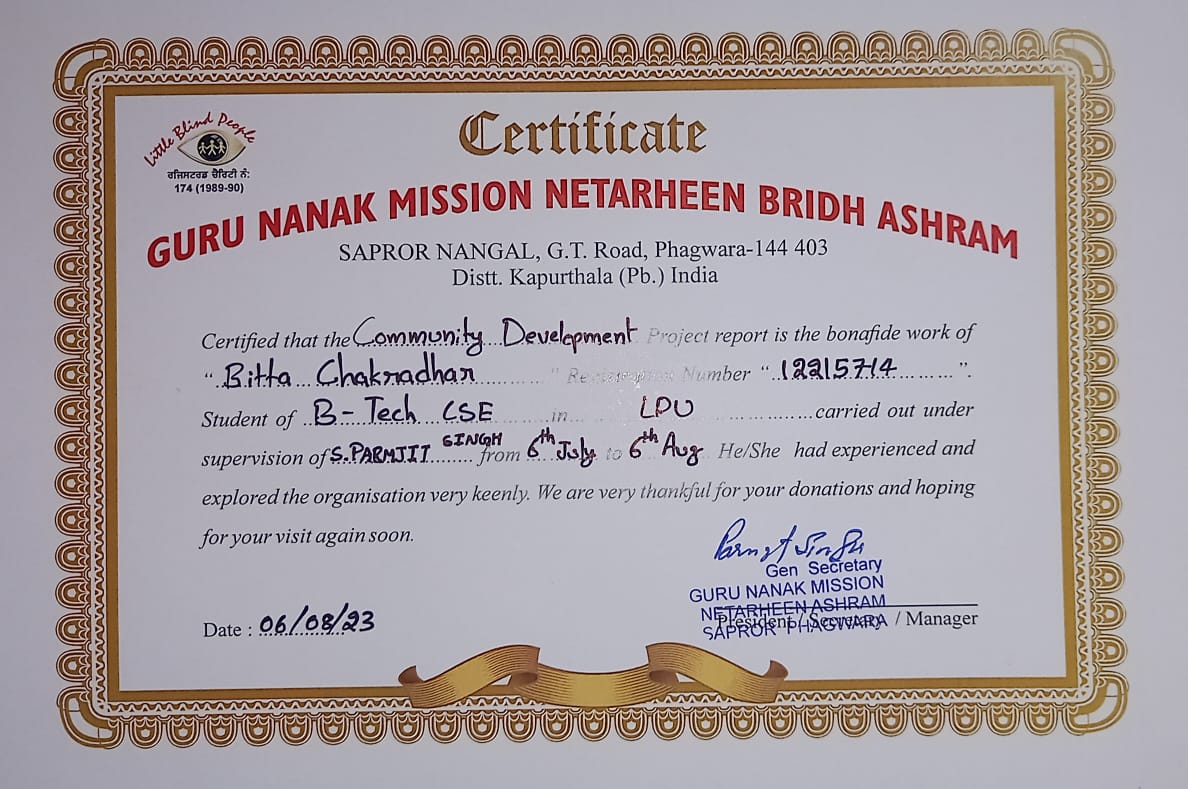 Little Blind People
ਰਜਿਸਟਰਡ ਚੈਰਿਟੀ ਨੰ:
174 (1989-90)
Certificate
GURU NANAK MISSION NETARHEEN BRIDH ASHRAM
SAPROR NANGAL, G.T. Road, Phagwara-144 403
Distt. Kapurthala (Pb.) India
Certified that the Community Development Project report is the bonafide work of
“ Bitta Chakradhar ” Registration Number “ 12215714 ”.
Student of B-Tech CSE in LPU carried out under
supervision of S.PARMJIT SINGH from 6th July to 6th Aug He/She had experienced and
explored the organisation very keenly. We are very thankful for your donations and hoping
for your visit again soon.
Gen Secretary
GURU NANAK MISSION
NETARHEEN ASHRAM
SAPROR PHAGWARA
President / Secretary / Manager
Date : 06/08/23